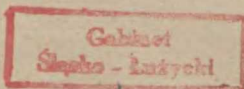 Gabinet
Śląsko - Łużycki